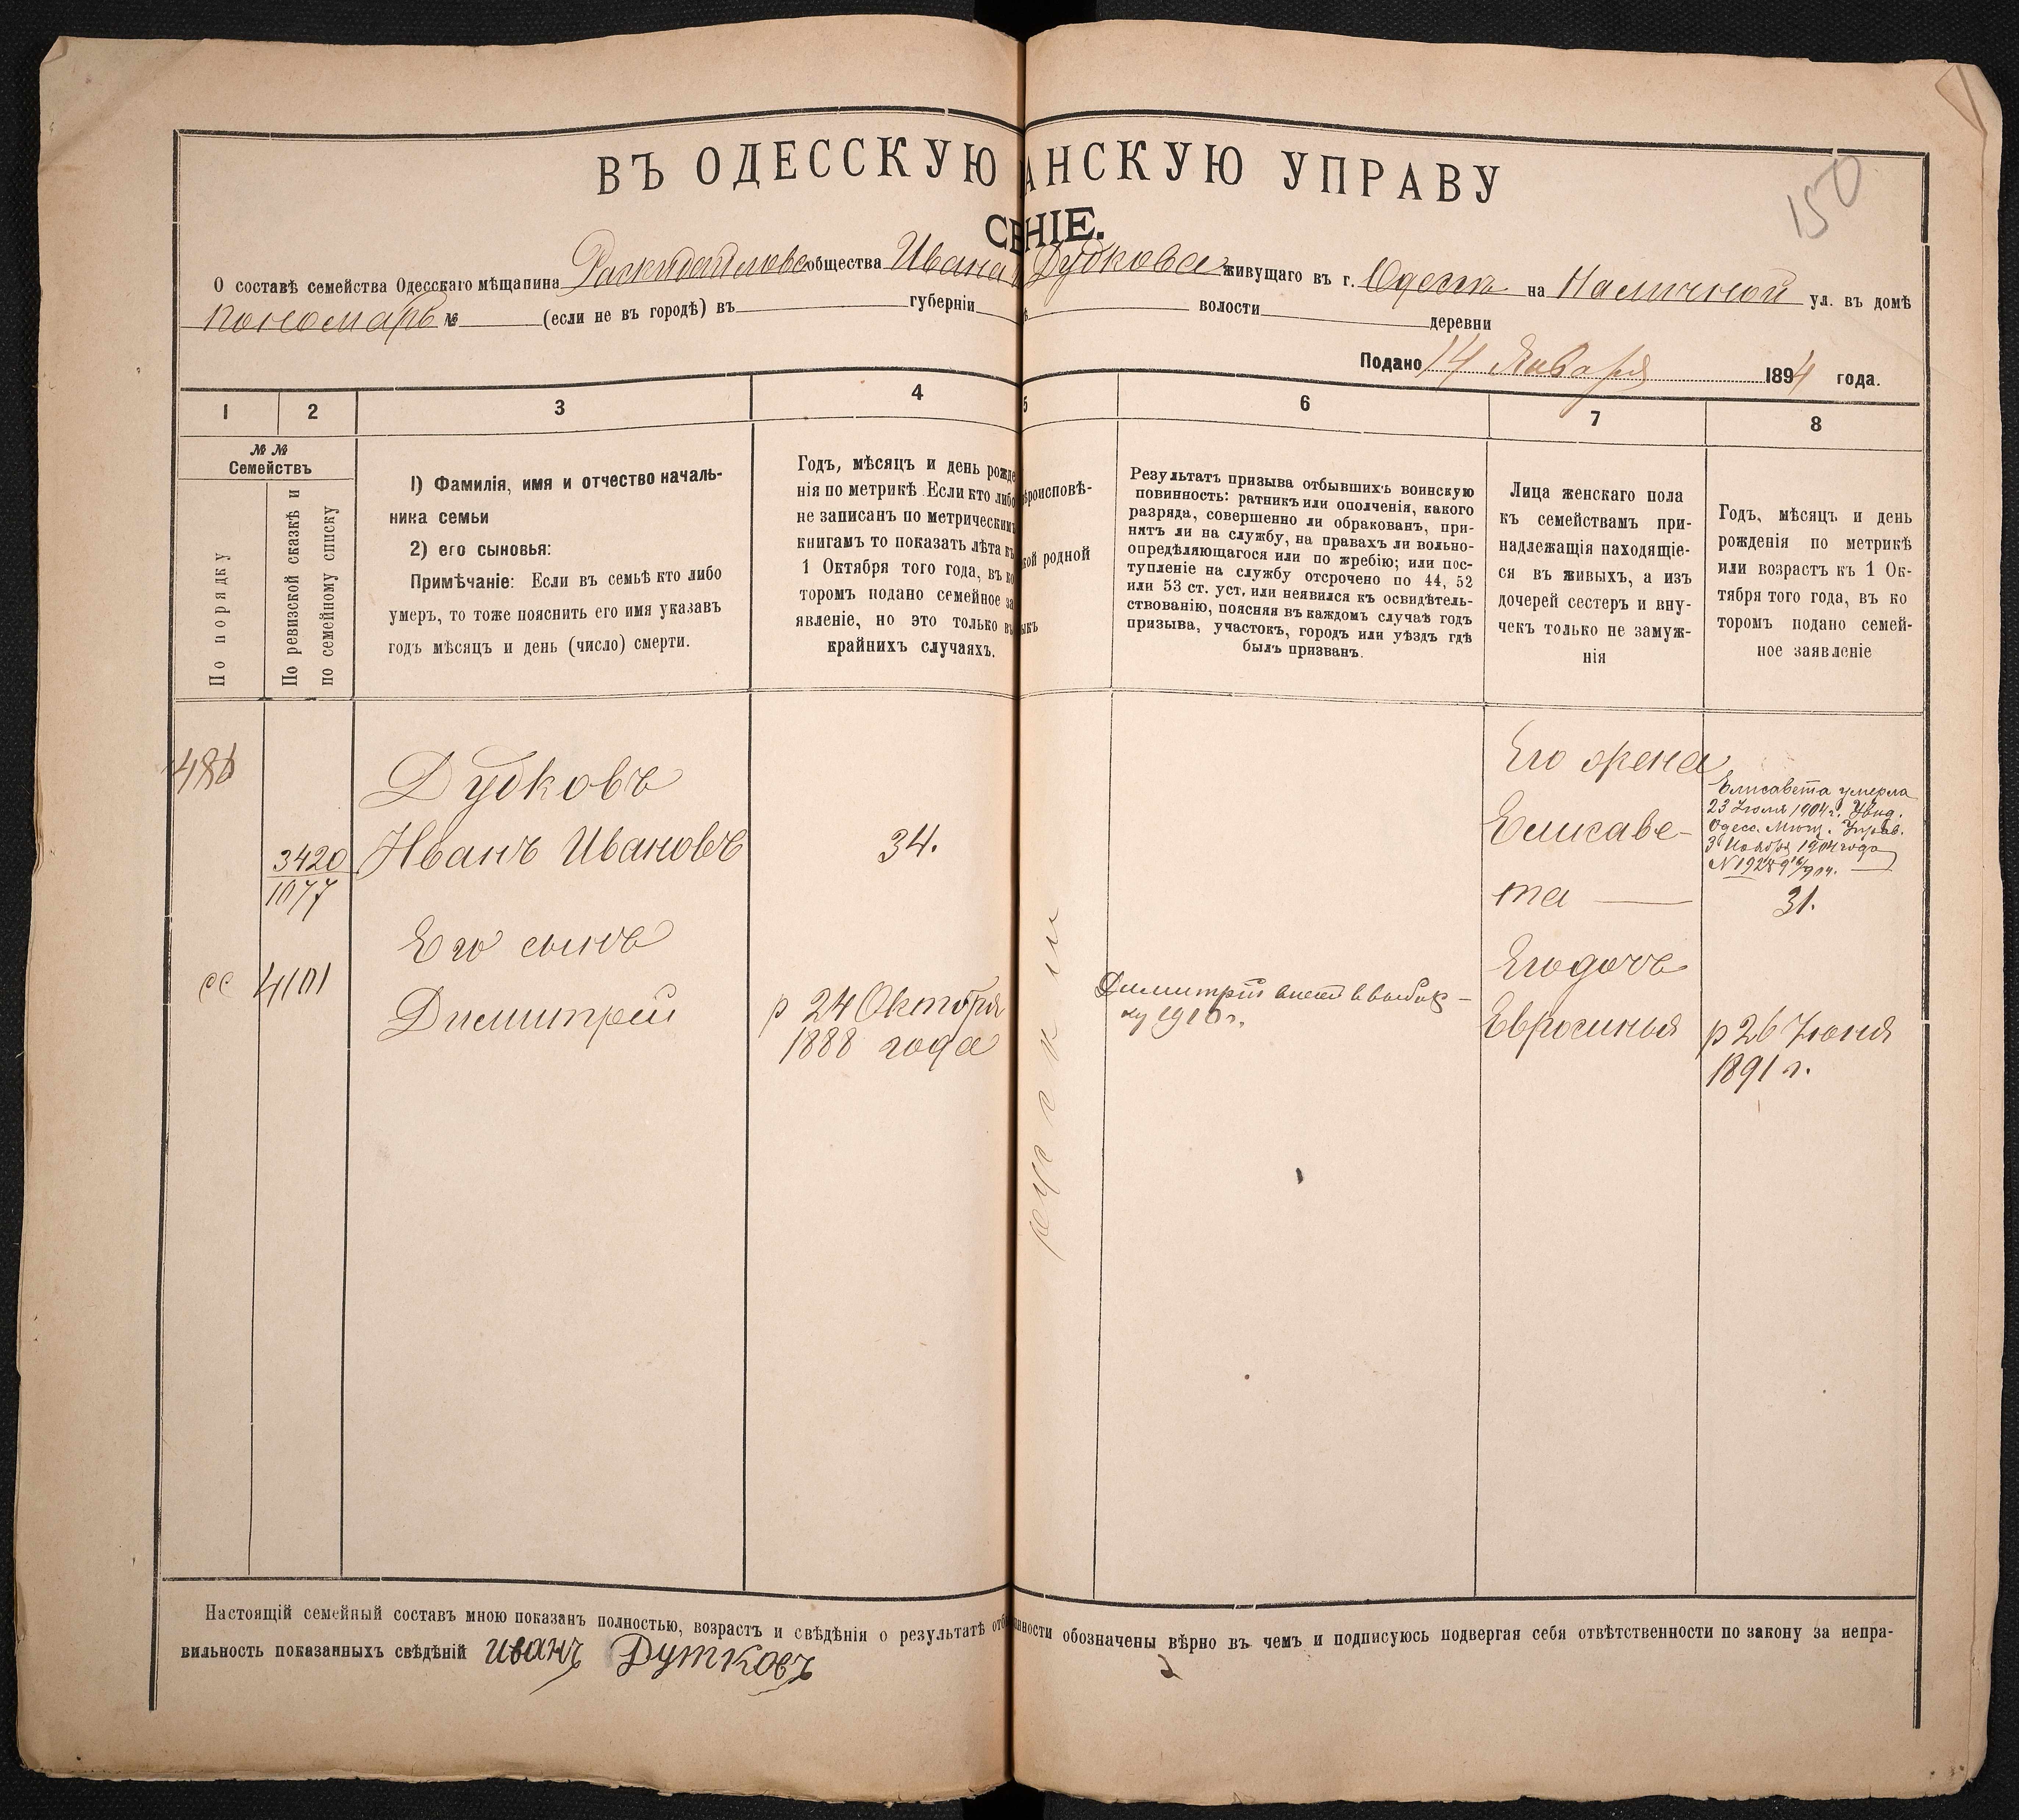 ВЪ ОДЕССКУЮ АНСКУЮ УПРАВУ
150
СЕНІЕ.
О составѣ семейства Одесскаго мѣщанина общества Ивана Дубкова живущаго въ г. Одессѣ на Наличной ул. въ домѣ
Пономарь № (если не въ городѣ) въ губерніи волости деревни
Подано 14 Января 1894 года.
1 2 3 4 5 6 7 8
№ №
Семействъ
По порядку
По ревизской сказкѣ и
по семейному списку
1) Фамилія, имя и отчество началь-
ника семьи
2) его сыновья:
Примѣчаніе: Если въ семьѣ кто либо
умеръ, то тоже пояснить его имя указавъ
годъ мѣсяцъ и день (число) смерти.
Годъ, мѣсяцъ и день рожде
нія по метрикѣ. Если кто либо
не записанъ по метрическимъ
книгамъ то показать лѣта къ
1 Октября того года, въ ко
торомъ подано семейное за
явленіе, но это только въ
крайнихъ случаяхъ.
ѣроисповѣ-
кой родной
ыкъ
Результатъ призыва отбывшихъ воинскую
повинность: ратникъ или ополченія, какого
разряда, совершенно ли обракованъ, при-
нятъ ли на службу, на правахъ ли вольно-
опредѣляющагося или по жребію; или пос-
тупленіе на службу отсрочено по 44, 52
или 53 ст. уст, или неявился къ освидѣтель-
ствованію, поясняя въ каждомъ случаѣ годъ
призыва, участокъ, городъ или уѣздъ гдѣ
былъ призванъ.
Лица женскаго пола
къ семействамъ при-
надлежащія находящіе-
ся въ живыхъ, а изъ
дочерей сестеръ и вну-
чекъ только не замуж-
нія
Годъ, мѣсяцъ и день
рожденія по метрикѣ
или возрастъ къ 1 Ок-
тября того года, въ ко
торомъ подано семей-
ное заявленіе
Дубковъ
3420
1077
Иванъ Ивановъ
34.
Его сынъ
4101
Димитрей
р 24 Октября
1888 года
русскій
Димитрій внесен в выбор-
ку 1910 г.
Его жена
Елисаве-
та
Елисавета умерла
23 Іюля 1904 г. Увѣд.
Одесс. Мѣщ. Управ.
3 Ноября 1904 года
31.
Его дочь
Евросинья
р 26 Іюня
1891 г.
Настоящій семейный составъ мною показанъ полностью, возрастъ и свѣдѣнія о результатѣ отб инности обозначены вѣрно въ чемъ и подписуюсь подвергая себя отвѣтственности по закону за непра-
вильность показанныхъ свѣдѣній Иванъ Дутковъ